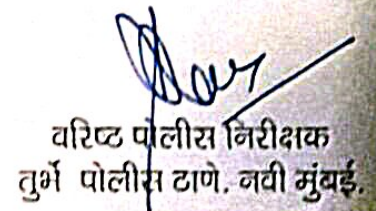 वरिष्ट पोलीस निरीक्षक
तुर्भे पोलीस ठाणे. नवी मुंबई.